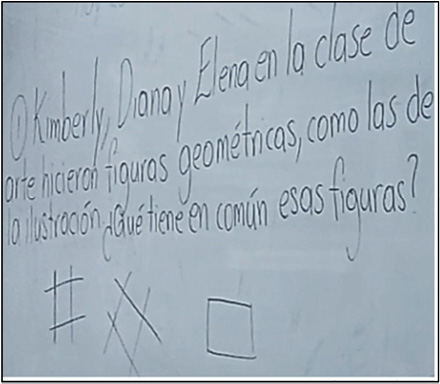 ① Kimberly, Diana y Elena en la clase de
arte hicieron figuras geométricas, como las de
la ilustración ¿Qué tiene en común esas figuras?